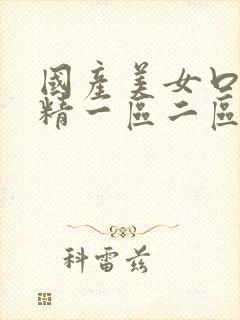 國產美女口
精一區二區
科雷兹